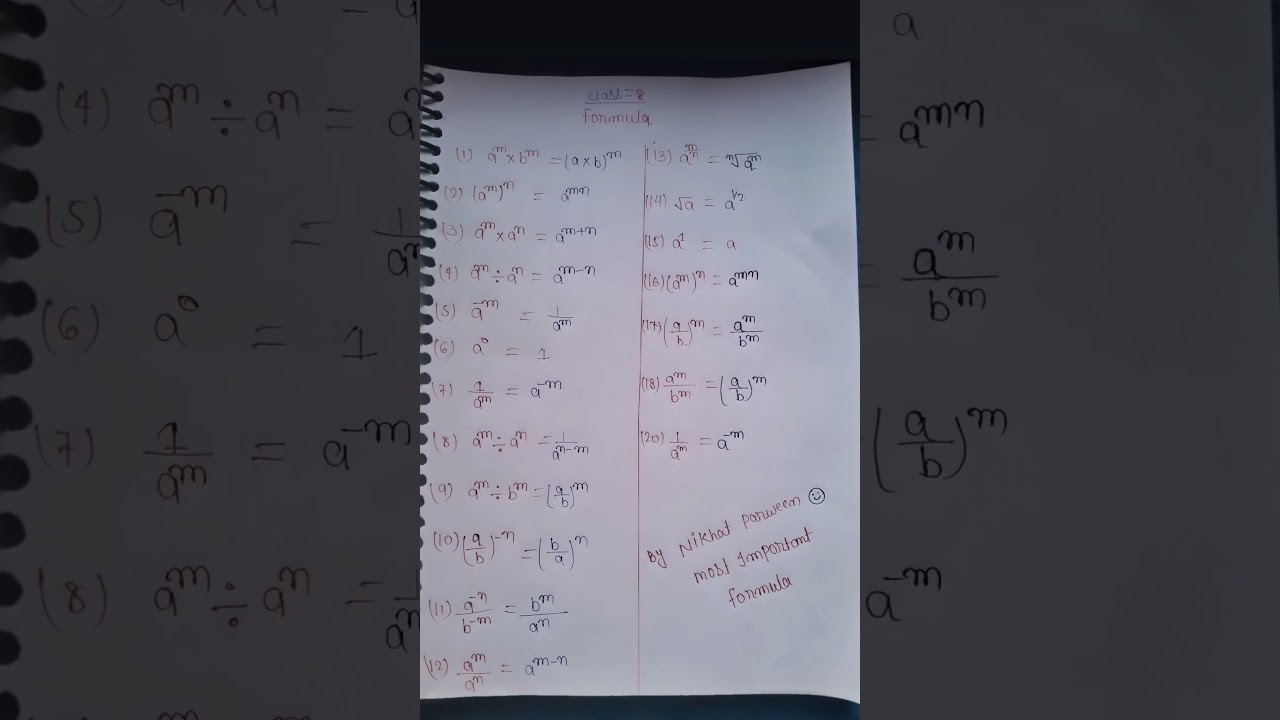 class = 8
formula
(1) a^m × b^m = (a × b)^m
(2) (a^m)^n = a^mn
(3) a^m × a^n = a^m+n
(4) a^m ÷ a^n = a^m-n
(5) a^-m = 1/a^m
(6) a^0 = 1
(7) 1/a^m = a^-m
(8) a^m ÷ a^n = 1/a^n-m
(9) a^m ÷ b^m = (a/b)^m
(10) (a/b)^-n = (b/a)^n
(11) a^-n/b^-m = b^m/a^n
(12) a^m/a^n = a^m-n
(13) a^m/n = ^n√a^m
(14) √a = a^1/2
(15) a^1 = a
(16) (a^m)^n = a^mn
(17) (a/b)^m = a^m/b^m
(18) a^m/b^m = (a/b)^m
(20) 1/a^m = a^-m
By Nikhat Parween ☺
most Important
formula
(4) a^m ÷ a^n = a
(5) a^-m = 1/a^m
(6) a^0 = 1
(7) 1/a^m = a^-m
(8) a^m ÷ a^n =
a
= a^mn
= a^m/b^m
(a/b)^m
a^-m